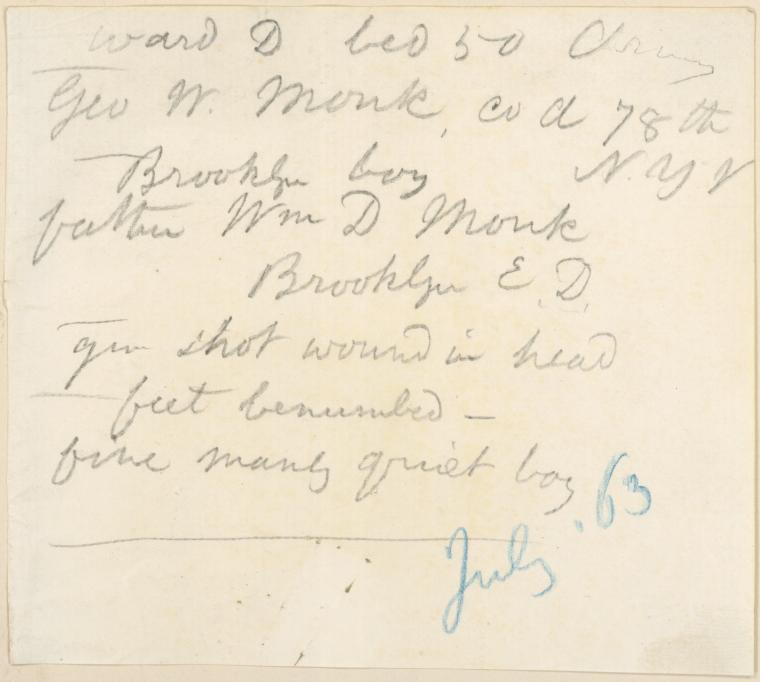 ward D bed 50 Army
Geo W. Monk, co A 78th
Brooklyn boy N.Y V
father Wm D Monk
Brooklyn E.D.
gun shot wound in head
feet benumbed –
fine manly quiet boy
July '63